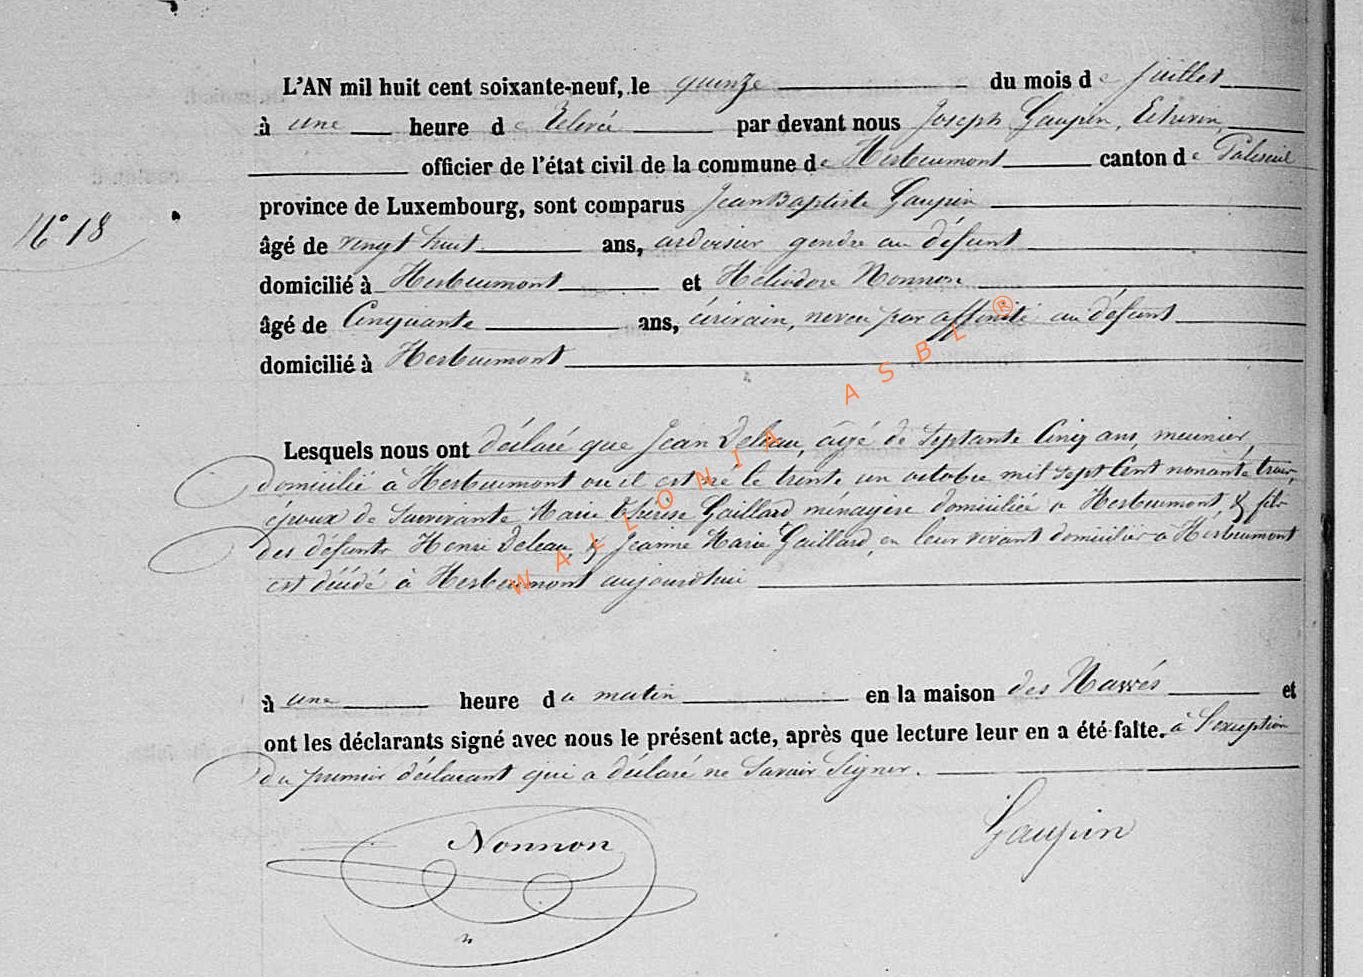 L'AN mil huit cent soixante-neuf, le quinze du mois de juillet
à une heure de relevée par devant nous Joseph Gaupin, Echevin,
officier de l'état civil de la commune de Herbeumont canton de Paliseul
N° 18
province de Luxembourg, sont comparus Jean Baptiste Gaupin
âgé de vingt huit ans, ardoisier gendre au défunt
domicilié à Herbeumont et Héliodore Nonnon
âgé de Cinquante ans, écrivain, neveu par affinité au défunt
domicilié à Herbeumont
Lesquels nous ont déclaré que Jean Deleau, âgé de Septante Cinq ans, meunier,
domicilié à Herbeumont ou il est né le trente un octobre mil sept Cent nonante trois,
époux de Survivante Marie Thérèse Gaillard ménagère domiciliée à Herbeumont, & fils
des défunts Henri Deleau, & Jeanne Marie Gaillard, en leur vivant domiciliés à Herbeumont
est décédé à Herbeumont aujourdhui
à une heure du matin en la maison des et
ont les déclarants signé avec nous le présent acte, après que lecture leur en a été faite. à l'exception
du premier déclarant qui a déclaré ne Savoir Signer.
Nonnon
Gaupin
WALLONIA ASBL ®